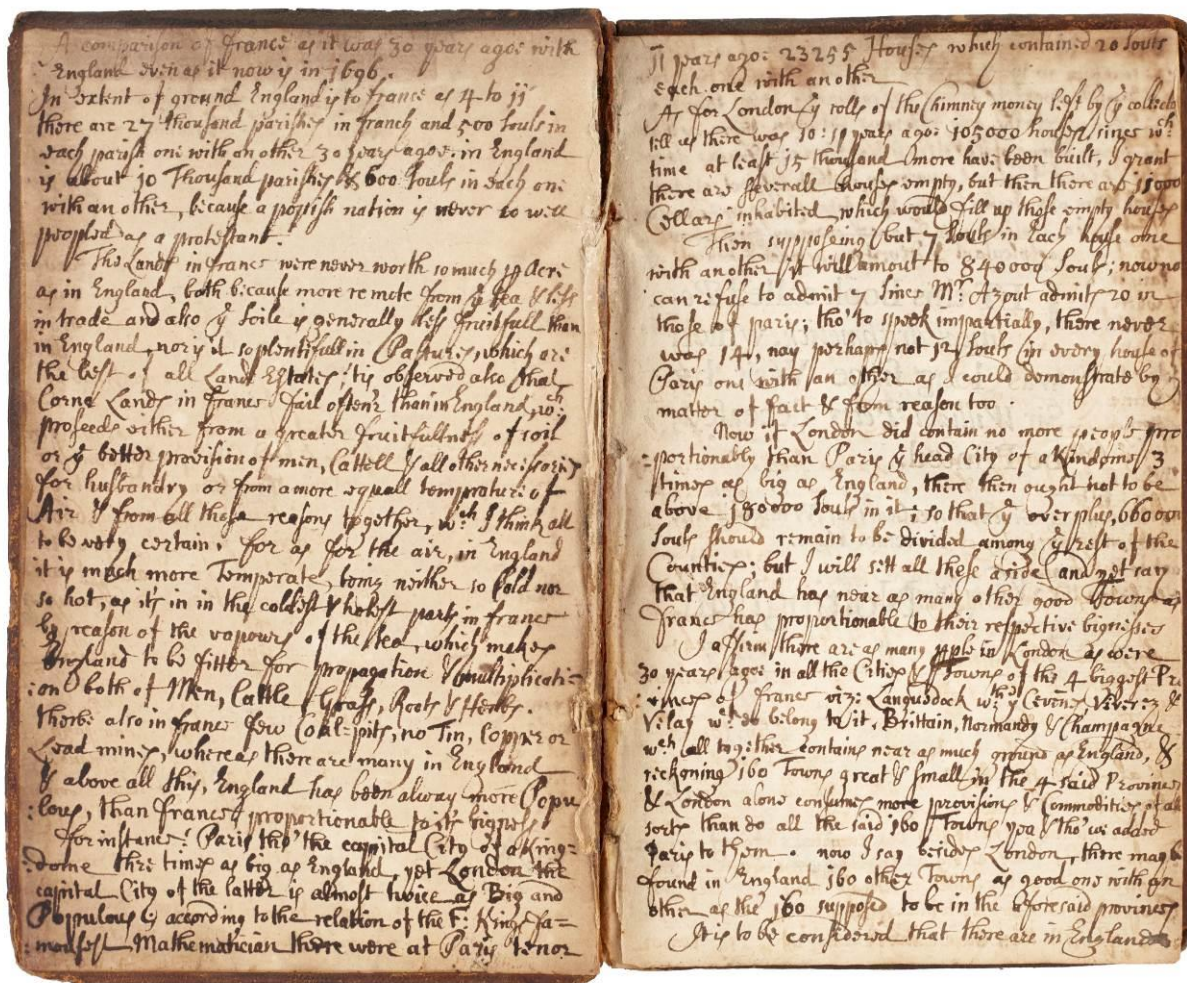 A comparison of france as it was 30 years agoe with
England even as it now is in 1696.
In extent of ground England is to france as 4 to 11
there are 27 thousand parishes in franch and 500 souls in
each parish one with an other 30 years agoe: in England
is about 10 Thousand parishes & 600 souls in each one
with an other, because a popish nation is never so well
peopled as a protestant.
The Lands in france were never worth so much p Acre
as in England, both because more remote from ye sea & less
in trade and also ye soile is generally less fruitfull than
in England, nor is it so plentifull in Pastures, which are
the best of all Land Estates; tis observed also that
Corne Lands in france fail often'r than in England, wch
proseeds either from a greater fruitfullness of soil
or ye better provision of men, Cattell & all other necessories
for husbandry or from a more equall temprature of
Air & from all those reasons together, wch I think all
to be very certain, for as for the air, in England
it is much more Temperate, being neither so Cold nor
so hot, as it's in in the coldest & hotest parts in france
by reason of the vapours of the sea, which makes
England to be fitter for propagation & multiplicati=
:on both of Men, Cattle, Grass, Roots & Herbs.
there also in france few Coal-pits, no Tin, Copper or
Lead mines, whereas there are many in England
& above all this, England has been alway more Popu
:lous, than france proportionable to its bigness
for instance: Paris tho' the capital City of a King=
:dome thre times as big as England, yet London the
capital City of the latter is almost twice as Big and
Populous; according to the relation of the f: Kings fa=
:mousest Mathematician there were at Paris tenor
11 years agoe 23255 Houses which contained 20 souls
each one with another
As for London ye rolls of the Chimney money left by ye collecto
tell us there was 10: 11 years agoe 105000 houses, sines wch
time at least 15 thousand more have been built, I grant
there are severall houses empty, but then there are 11000
Cellars inhabited, which would fill up those empty houses
Then supposeing but 7 souls in Each house one
with another it will amout to 840000 souls; now no
can refuse to admit 7 sines Mr Azout admits 20 in
those of paris; tho' to speek impartially, there never
was 14, nay perhaps not 12 souls in every house of
Paris one with an other as I could demonstrate by ye
matter of fact & from reason too.
Now if London did contain no more people pro
=portionably than Paris ye head City of a Kindome 3
times as big as England, there then ought not to be
above 180000 souls in it; so that ye overplus, 660000
souls should remain to be divided among ye rest of the
Counties; but I will sett all these aside and yet say
that England has near as many other good Towns as
france has proportionable to their respective bignesses
I affirm there are as many pple in London as were
30 years agoe in all the Cities & Towns of the 4 biggest Pro
:vinces of france viz: Languedock wth ye Cevines Viverez &
Velay wch do belong to it, Brittain, Normandy & Champagne
wch all together contains near as much ground as England, &
reckgning 160 Towns great & small in the 4 said Provinces
& London alone consumes more provisions & Commodities of all
sorts than do all the said 160 Towns yea & tho' we added
Paris to them. now I say besides London, there may be
found in England 160 other Towns as good one with an
other as the 160 supposed to be in the aforesaid provinces
It is to be considered that there are in England